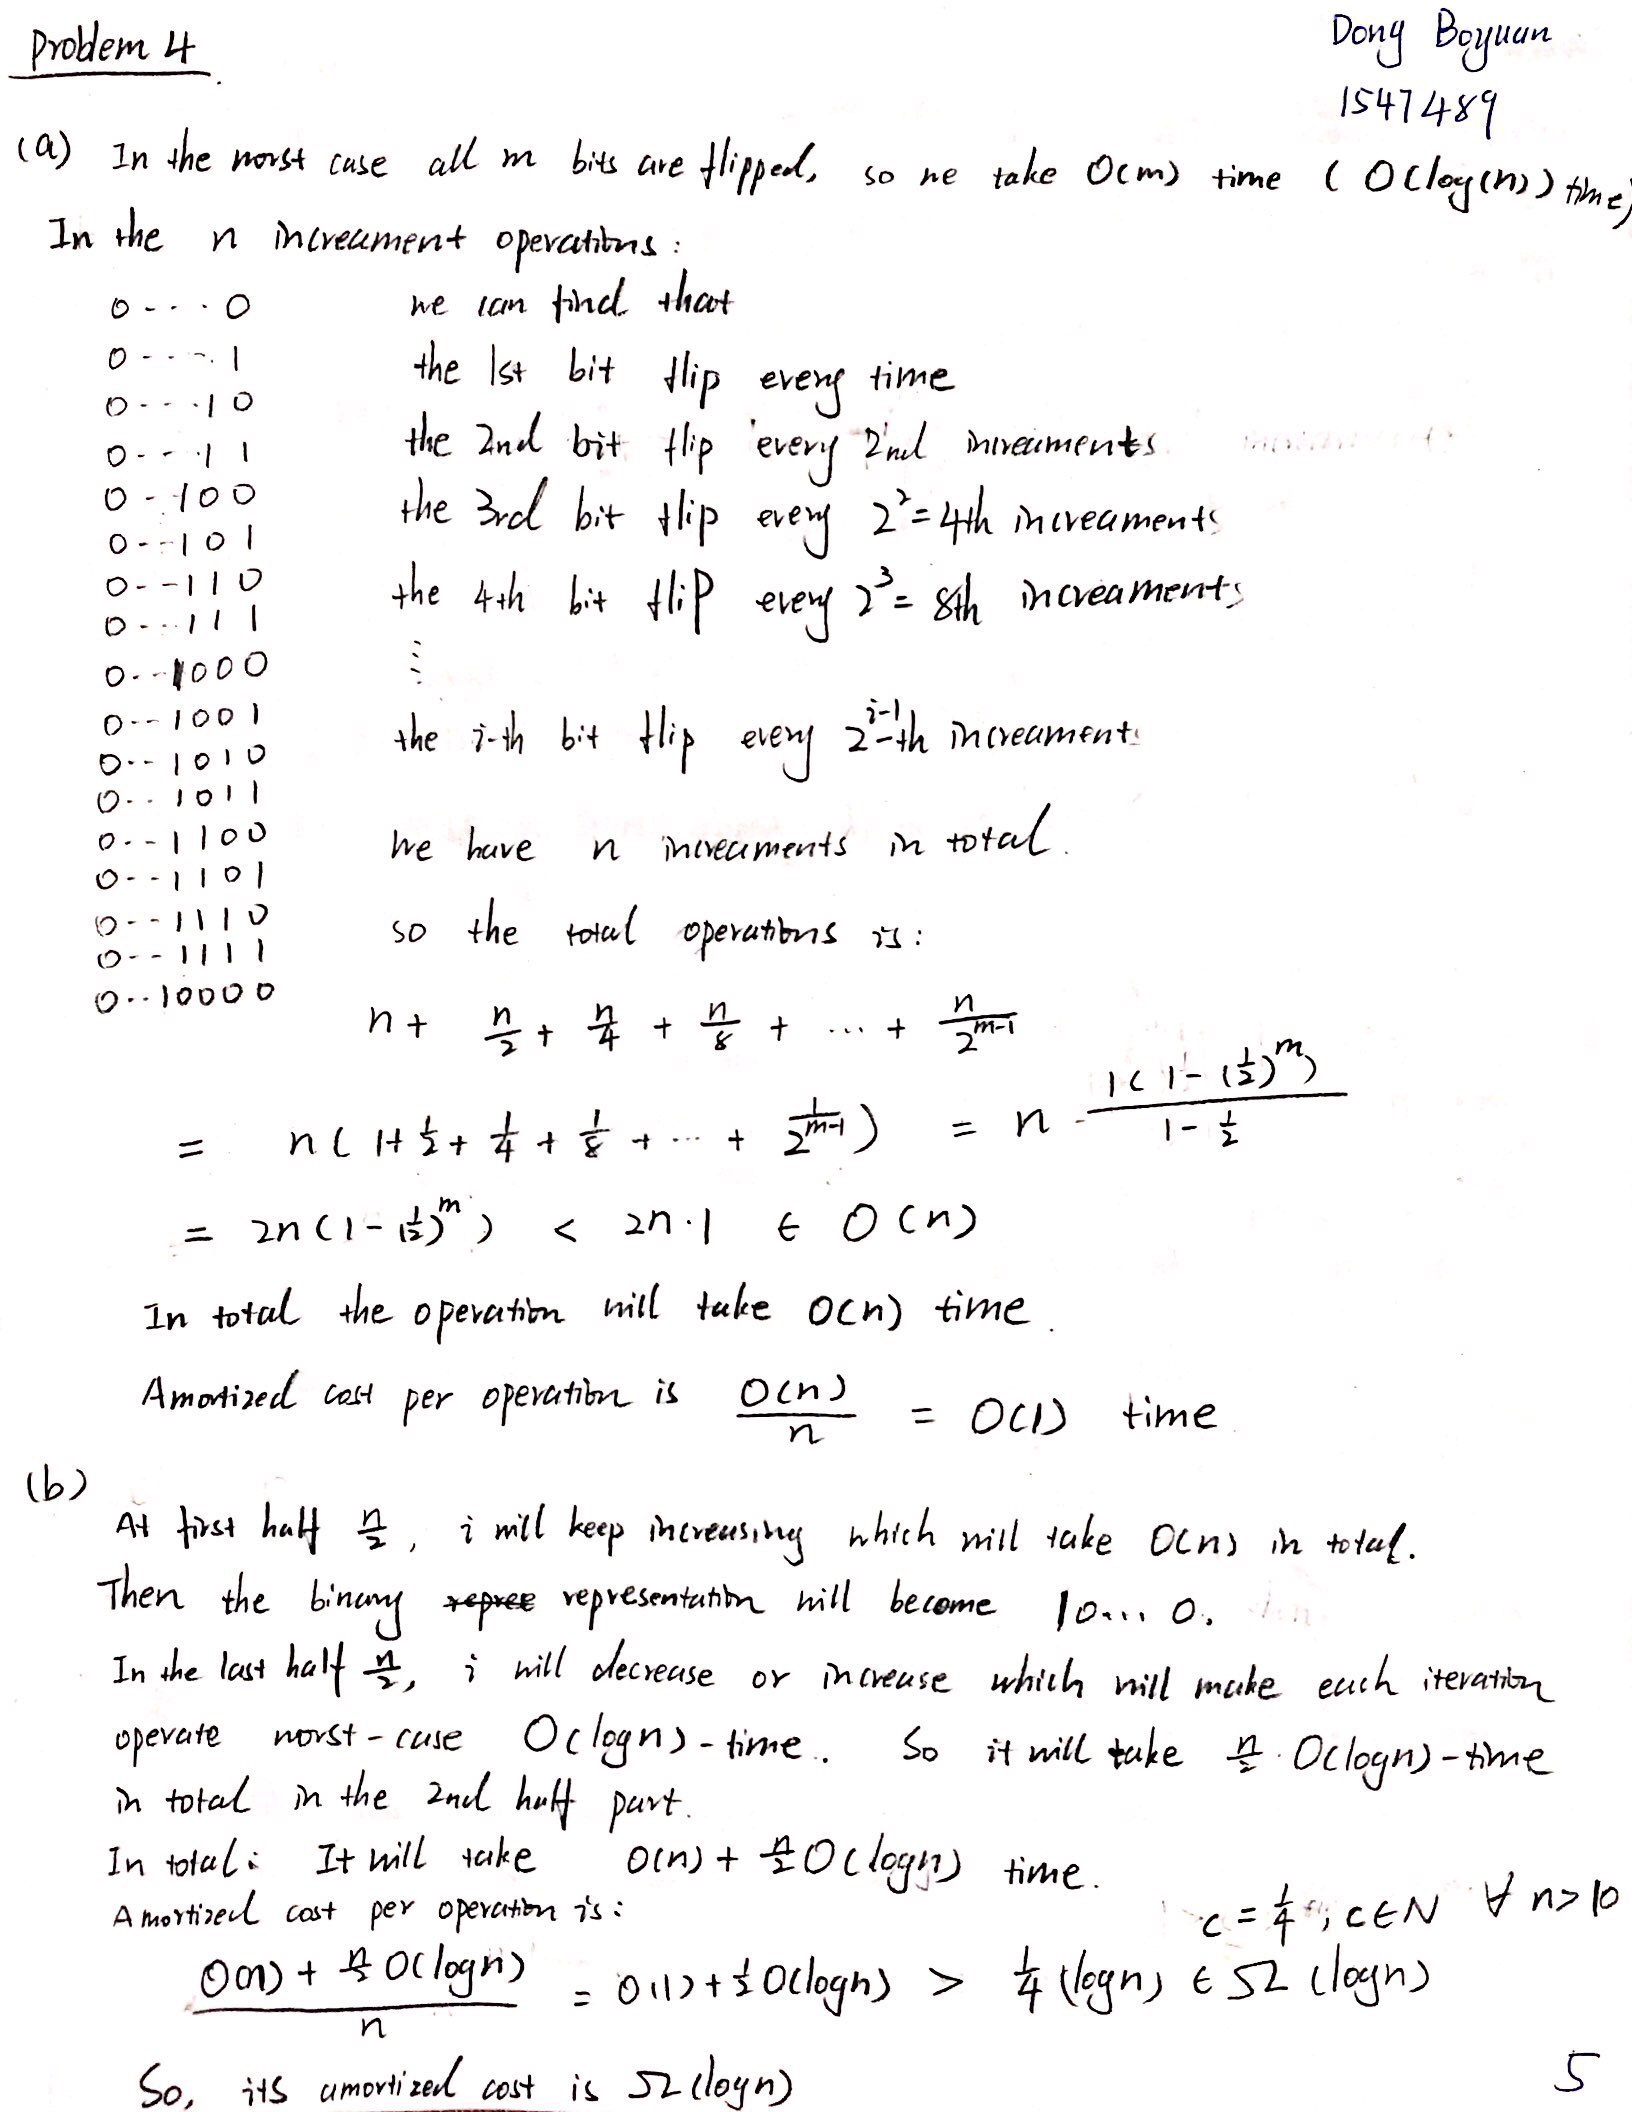 Problem 4
Dong Boyuan
1547489
(a) In the worst case all m bits are flipped, so we take O(m) time ( O(log(n)) time)
In the n increament operations:
0 - - · 0 we can find that
0 - - - · 1 the 1st bit flip every time
0 - - · 1 0
0 - - · 1 1 the 2nd bit flip every 2nd increaments
0 - · 1 0 0 the 3rd bit flip every 2² = 4th increaments
0 - - 1 0 1
0 - - 1 1 0 the 4th bit flip every 2³ = 8th increaments
0 - - · 1 1 1
0 · - - 1 0 0 0 ⋮
0 - - 1 0 0 1 the i-th bit flip every 2^{i-1}-th increaments
0 - - 1 0 1 0
0 - · 1 0 1 1
0 - - 1 1 0 0 We have n increaments in total.
0 - - 1 1 0 1
0 - - 1 1 1 0 so the total operations is:
0 - - 1 1 1 1
0 · · 1 0 0 0 0
n + n/2 + n/4 + n/8 + ... + n/2^{m-1}
= n( 1 + 1/2 + 1/4 + 1/8 + ... + 1/2^{m-1}) = n · 1( 1 - (1/2)^m) / (1 - 1/2)
= 2n(1 - (1/2)^m) < 2n·1 ∈ O(n)
In total the operation will take O(n) time.
Amortized cost per operation is O(n)/n = O(1) time
(b)
At first half n/2, i will keep increasing which will take O(n) in total.
Then the binary repree representation will become 10... 0.
In the last half n/2, i will decrease or increase which will make each iteration
operate worst-case O(logn)-time. So it will take n/2 · O(logn)-time
in total in the 2nd half part.
In total: It will take O(n) + n/2 O(logn) time.
Amortized cost per operation is:
c = 1/4, c∈N ∀ n>10
(O(n) + n/2 O(logn)) / n = O(1) + 1/2 O(logn) > 1/4 (logn) ∈ Ω (logn)
So, its amortized cost is Ω(logn)
5